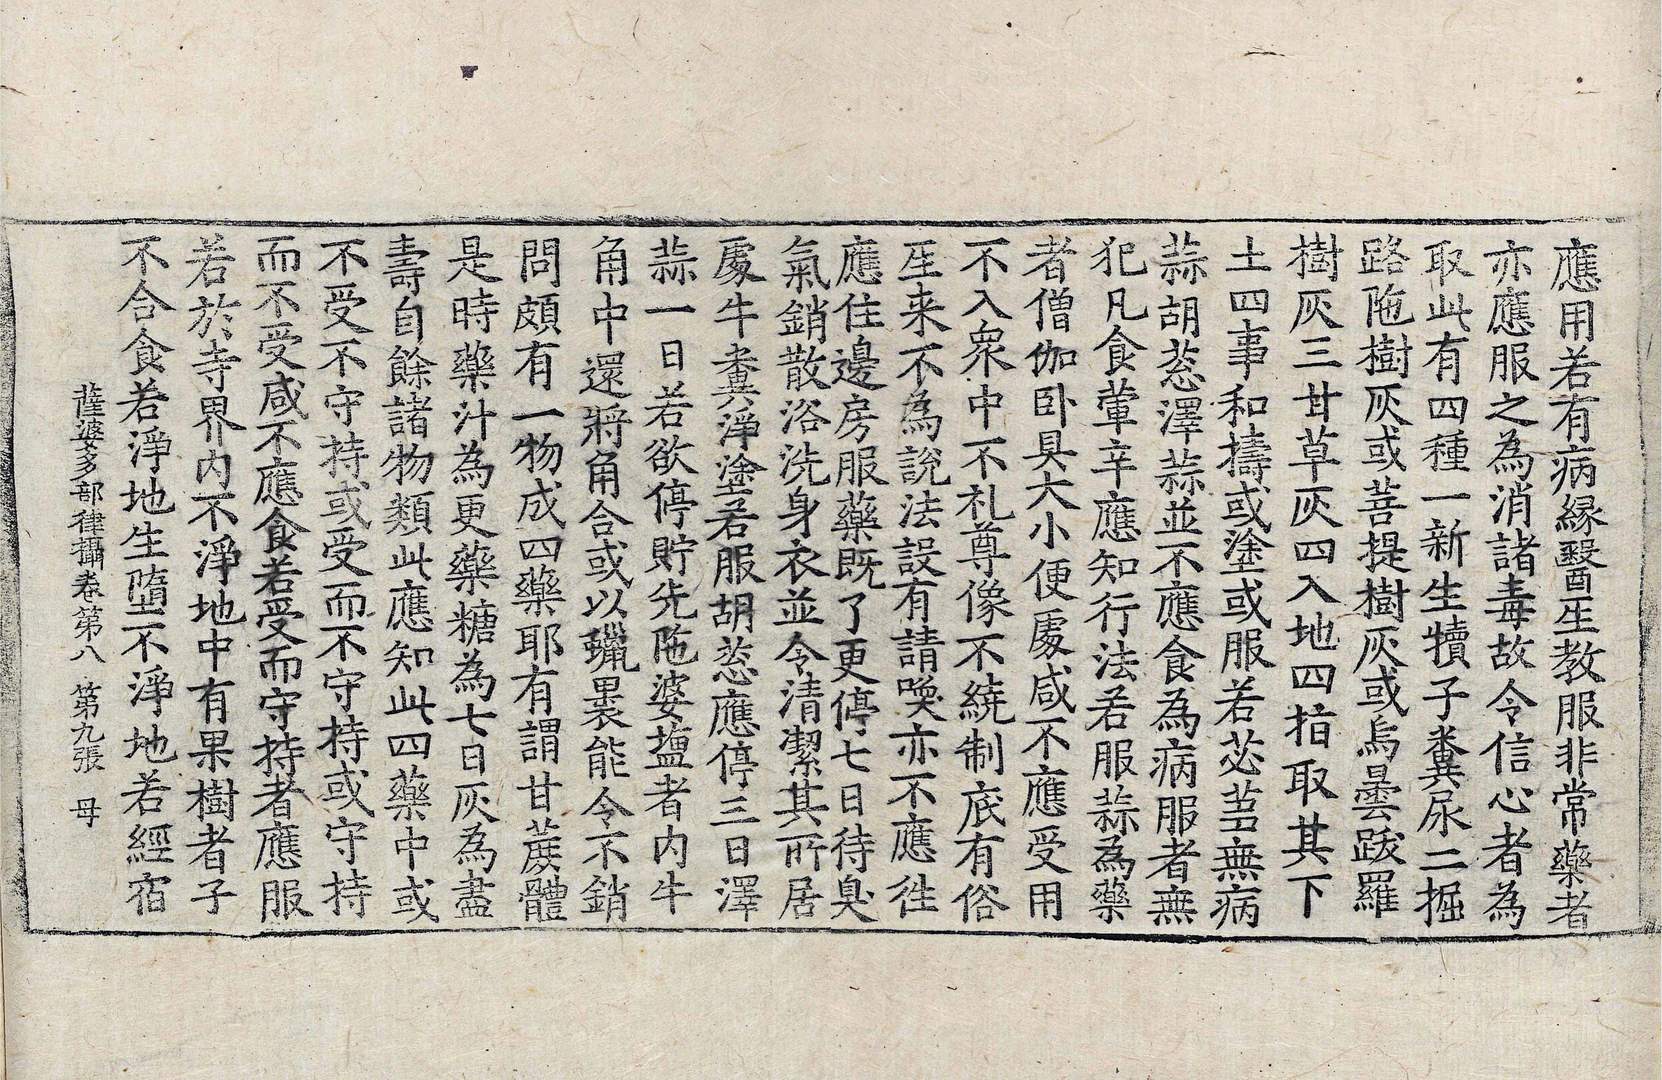 應用若有病緣醫生教服非常藥者
亦應服之為消諸毒故令信心者為
取此有四種一新生犢子糞尿二掘
路陁樹灰或菩提樹灰或烏曇跋羅
樹灰三甘草灰四入地四指取其下
土四事和擣或塗或服若苾蒭無病
蒜胡荵澤蒜並不應食為病服者無
犯凡食葷辛應知行法若服蒜為藥
者僧伽卧具大小便處咸不應受用
不入衆中不礼尊像不繞制底有俗
𤯔来不為說法設有請喚亦不應徃
應住邊房服藥既了更停七日待臭
氣銷散浴洗身衣並令清潔其所居
處牛糞淨塗若服胡荵應停三日澤
蒜一日若欲停貯先陁婆塩者內牛
角中還將角合或以蠟裹能令不銷
問頗有一物成四藥耶有謂甘蔗體
是時藥汁為更藥糖為七日灰為盡
壽自餘諸物類此應知此四藥中或
不受不守持或受而不守持或守持
而不受咸不應食若受而守持者應服
若於寺界內不淨地中有果樹者子
不合食若淨地生墮不淨地若經宿
薩婆多部律攝卷第八　第九張　母